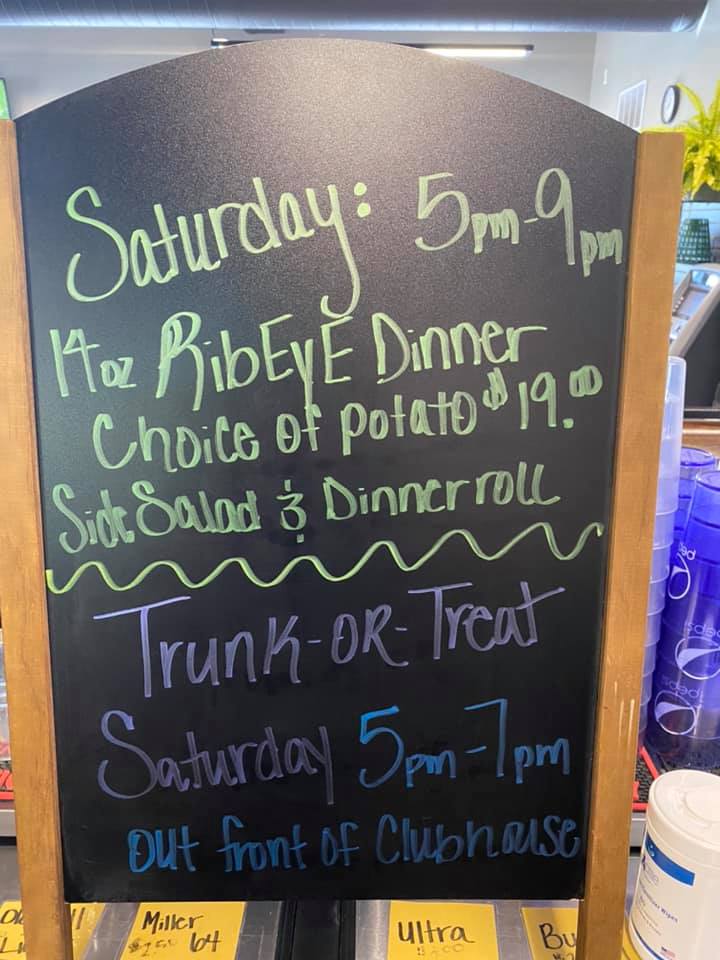 Saturday: 5pm-9pm
14oz RibEyE Dinner
Choice of potato $19.00
Side Salad & Dinner roll
Trunk-OR-Treat
Saturday 5pm-7pm
out front of Clubhouse
Miller
64
Ultra
Bu
pepsi
Wipes